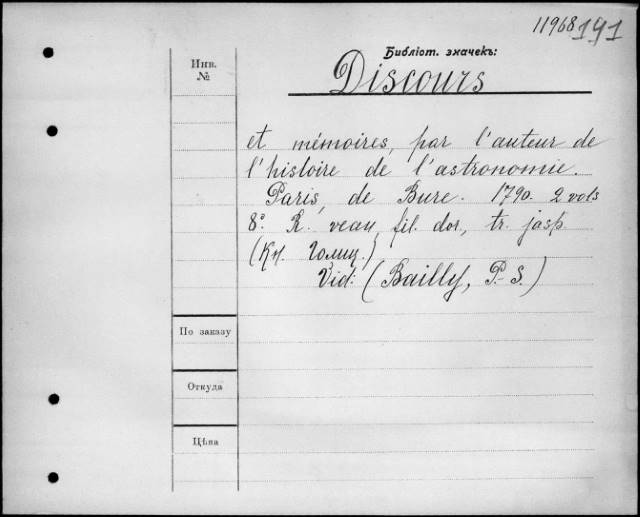 11968 141
Библіот. значекъ:
Инв.
№
Discours
et mémoires, par l'auteur de
l'histoire de l'astronomie.
Paris, de Bure. 1790. 2 vols
8°. R. veau, fil. dor., tr. jasp.
(Кн. Голиц.)
Vid: (Bailly, P. S.)
По заказу
Откуда
Цѣна